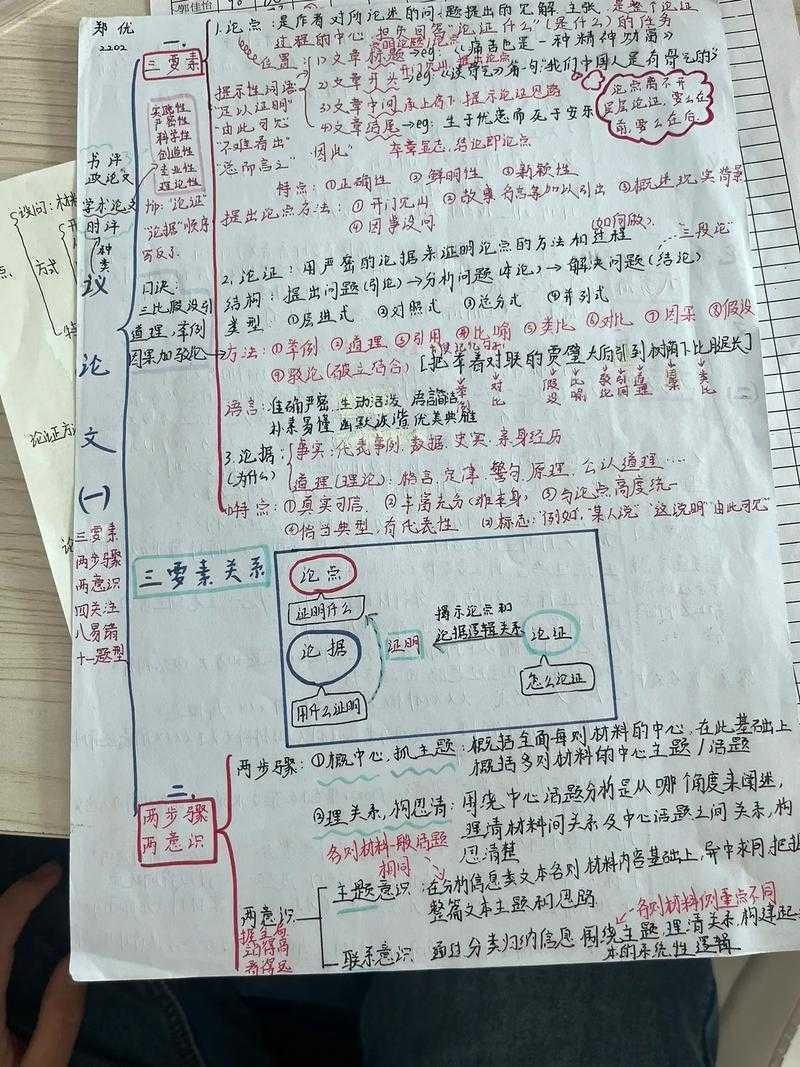 郑优
2202
一.
三要素
1.论点：是作者对所论述的问题提出的见解 主张，是整个论证
过程的中心 担负回答"论证什么"(是什么)的任务
位置：
1)文章标题→eg:《痛苦也是一种精神功需》
2)文章开头
"我们中国人是有骨气的"
3)文章中间 承上启下 提示论证思路
4)文章结尾→eg: 生于忧患而死于安乐
卒章显志，结论即论点
论点离不开
层层论证，要么在
前，要么在后。
提示性词语
"足以证明"
"由此可见"
"不难看出"
"总而言之"
因此"
实践性
严密性
科学性
创造性
专业性
理论性
书评
政论文
学术论文
时评
种类
tip："论证"
"论据"顺序
写反了.
特点：①正确性 ②鲜明性 ③新颖性
提出论点方法：①开门见山 ②故事、名言等加以引出 ③概述现实背景
④因事设问
(如何做)
2.论证：用严密的论据来证明论点的方法和过程
"三段论"
结构：提出问题(引论)→分析问题(本论)→解决问题(结论)
类型：①层进式 ②对照式 ③总分式 ④并列式
口诀：
三比假设引
道理,举例
因果加驳论
方法：①举例 ②道理 ③引用 ④比喻 ⑤类比 ⑥对比 ⑦因果 ⑧假设
⑨驳论(破立结合)
[把举着对联的贾璧大后引到树荫下比脚长]
语言：准确严密 生动活泼 语言简洁
朴素易懂 幽默诙谐 优美典雅
3.论据：
(为什么)
事实：代表事例、数据、史实、亲身经历
道理(理论)：格言、定律、警句、原理、公认道理……
特点：①真实可信 ②丰富充分 ③与论点高度统一
④恰当典型，有代表性
标志："例如，某人说""这说明""由此可见"
议
论
文
(一)
三要素
两步骤
两意识
四关注
八易错
十一题型
三要素关系
论点
证明什么
论据
用什么证明
证明
揭示论点和
论据逻辑关系
论证
怎么论证
二.
两步骤
两意识
两步骤：①概中心，抓主题：概括全面每则材料的中心，在此基础上
概括多则材料的中心主题/话题
②理关系，构思清：围绕中心话题分析是从哪个角度来阐述，
理清材料间关系及中心话题之间关系，构
思清楚
各则材料一般话题
相同
两意识
主题意识：在分析信息类文本各则材料内容基础上，异中求同，把握
整篇文本主题和思路
各则材料侧重点不同
联系意识：通过分类归纳信息 围绕主题，理清关系，构建起
本的系统性逻辑
设问：
方式
论证方